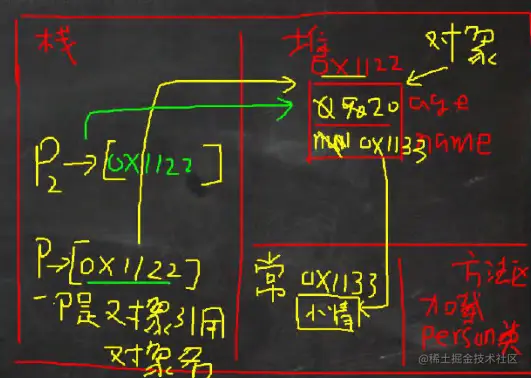 栈
P2→[0X1122]
P→[0X1122]
一P是对象引用
对象名
堆
对象
0X1122
20 age
0X1133 name
常 0X1133
小情
方法区
加载
Person类
@稀土掘金技术社区